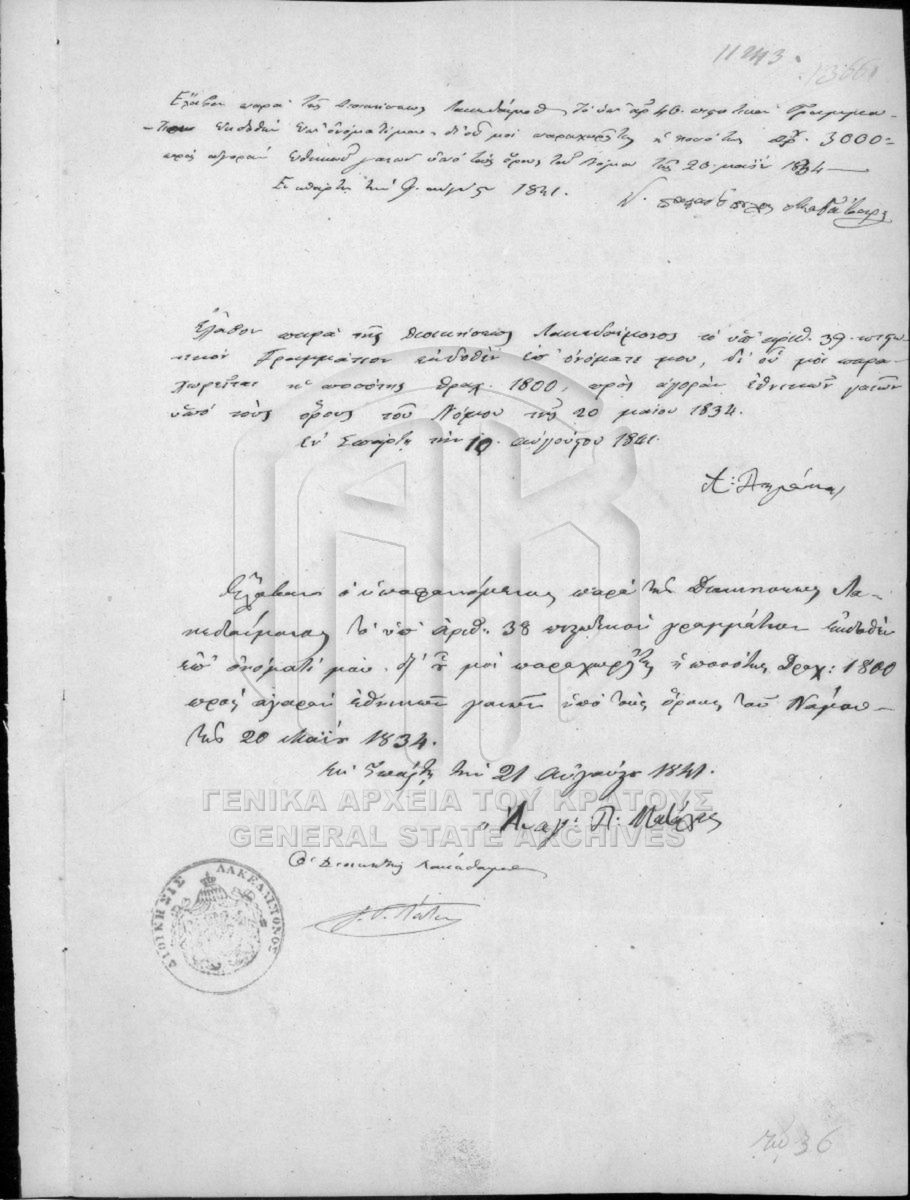 11243.
Ἔλαβον παρὰ τῆς Διοικήσεως Λακεδαίμονος τὸ ὑπ' ἀρ 40 πιστωτικὸν Γραμμα-
τιον ἐκδοθὲν ἐπ' ὀνόματί μου, δι' οὗ μοὶ παραχωρεῖται ἡ ποσότης Δρ. 3000=
πρὸς ἀγορὰν ἐθνικῶν γαιῶν ὑπὸ τοὺς ὅρους τοῦ Νόμου τῆς 20 μαΐου 1834
Ἐν Σπάρτῃ τὴν 9 αὐγούστου 1841.
Ἔλαβον παρὰ τῆς Διοικήσεως Λακεδαίμονος τὸ ὑπ' ἀριθ. 39 πιστω-
τικὸν Γραμμάτιον ἐκδοθὲν ἐπ' ὀνόματί μου, δι' οὗ μοὶ παρα-
χωρεῖται ἡ ποσότης δραχ. 1800, πρὸς ἀγορὰν ἐθνικῶν γαιῶν
ὑπὸ τοὺς ὅρους τοῦ Νόμου τῆς 20 μαΐου 1834.
Ἐν Σπάρτῃ τὴν 10 αὐγούστου 1841.
Ἔλαβον ὁ ὑποφαινόμενος παρὰ τῆς Διοικήσεως Λα-
κεδαίμονος τὸ ὑπ' ἀριθ: 38 πιστωτικὸν γραμμάτιον ἐκδοθὲν
ἐπ' ὀνόματί μου δι' οὗ μοὶ παραχωρεῖται ἡ ποσότης Δραχ: 1800
πρὸς ἀγορὰν ἐθνικῶν γαιῶν ὑπὸ τοὺς ὅρους τοῦ Νόμου
τῆς 20 Μαΐου 1834.
Ἐν Σπάρτῃ τὴν 21 αὐγούστου 1841.
ΓΕΝΙΚΑ ΑΡΧΕΙΑ ΤΟΥ ΚΡΑΤΟΥΣ
GENERAL STATE ARCHIVES
Ἀναγ: Π:
Ὁ Διοικητὴς Λακεδαίμονος
ΔΙΟΙΚΗΣΙΣ ΛΑΚΕΔΑΙΜΟΝΟΣ
36